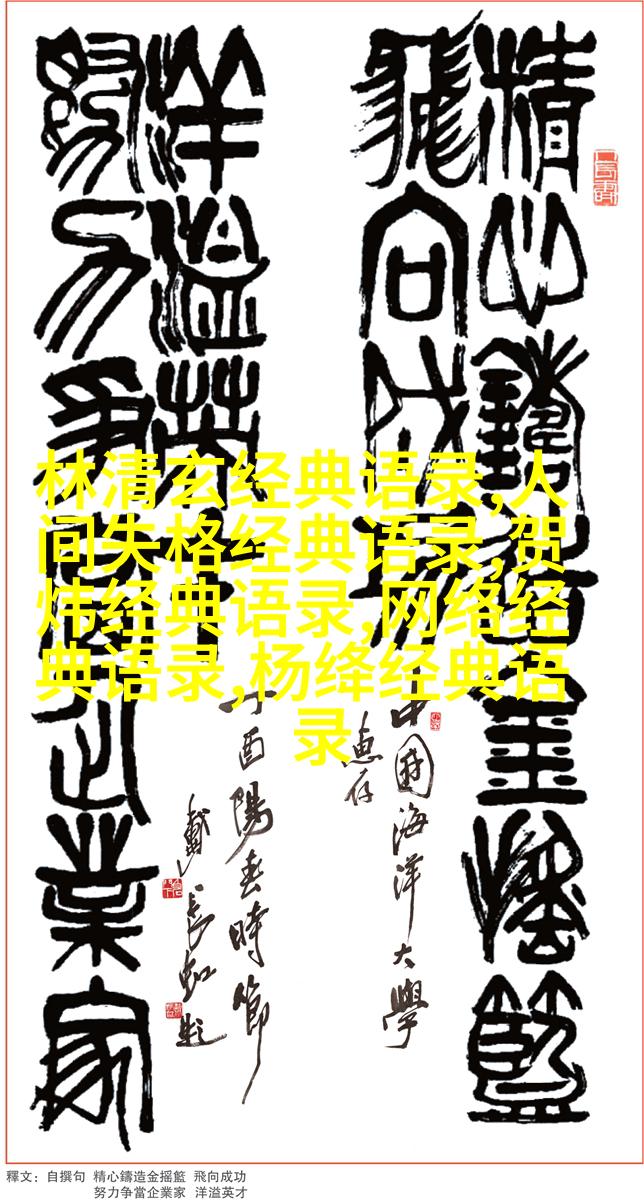 精心鑄造金摇籃
飛向成功
中國海洋大學
惠存
洋溢英才
丁酉陽春時節
戴長虹題
努力争當企業家
林清玄经典语录,人
间失格经典语录,贺
炜经典语录,网络经
典语录,杨绛经典语
录
釋文：自撰句 精心鑄造金摇籃 飛向成功
努力争當企業家 洋溢英才